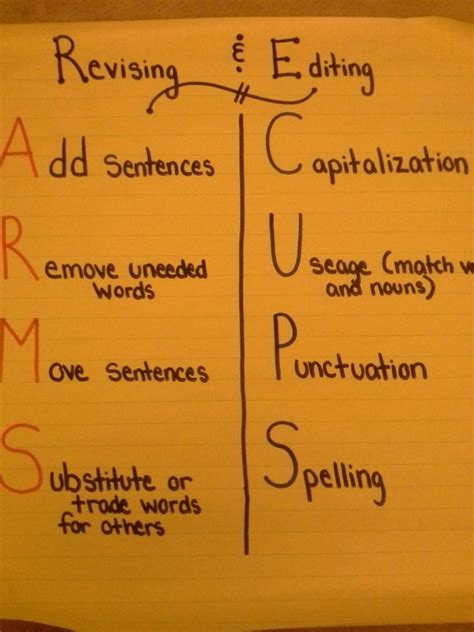 Revising & Editing
Add Sentences
Remove uneeded
words
Move Sentences
Substitute or
trade words
for others
Capitalization
Useage (match
and nouns)
Punctuation
Spelling